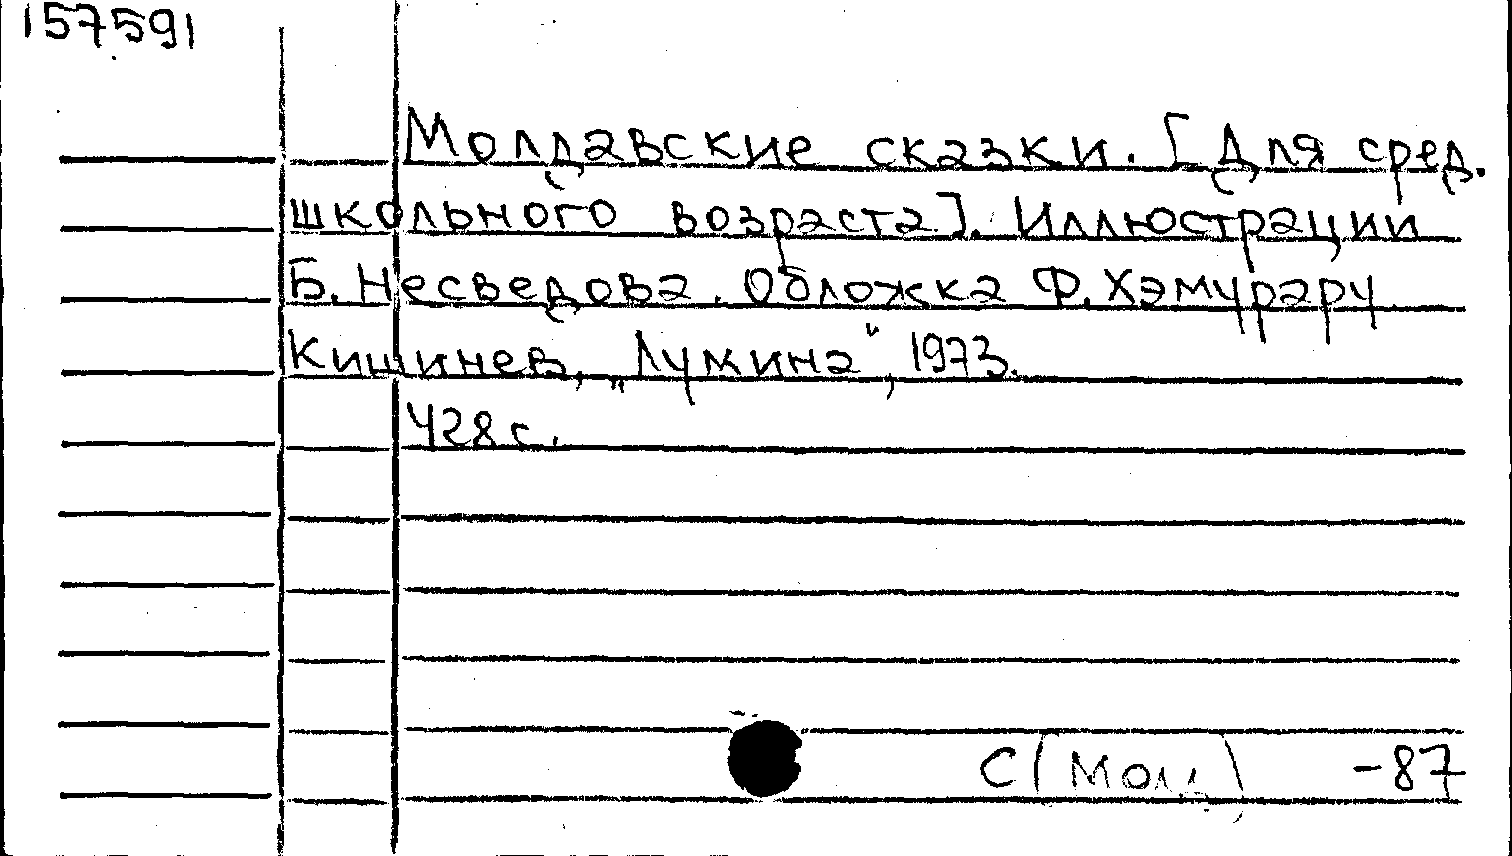 157591
Молдавские сказки. [Для сред.
школьного возраста]. Иллюстрации
Б. Несведова. Обложка Ф. Хэмурару
Кишинев, „Лумина", 1973.
428 с.
С (Молд) -87